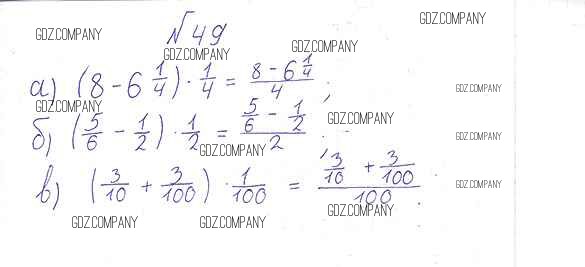 GDZ.COMPANY
№49
GDZ.COMPANY
GDZ.COMPANY
GDZ.COMPANY
а) (8 - 6 1/4) · 1/4 = (8 - 6 1/4)/4 ;
GDZ.COMPANY
GDZ.COMPANY
б) (5/6 - 1/2) · 1/2 = (5/6 - 1/2)/2 ;
GDZ.COMPANY
GDZ.COMPANY
GDZ.COMPANY
в) (3/10 + 3/100) · 1/100 = (3/10 + 3/100)/100 .
GDZ.COMPANY
GDZ.COMPANY
GDZ.COMPANY
GDZ.COMPANY